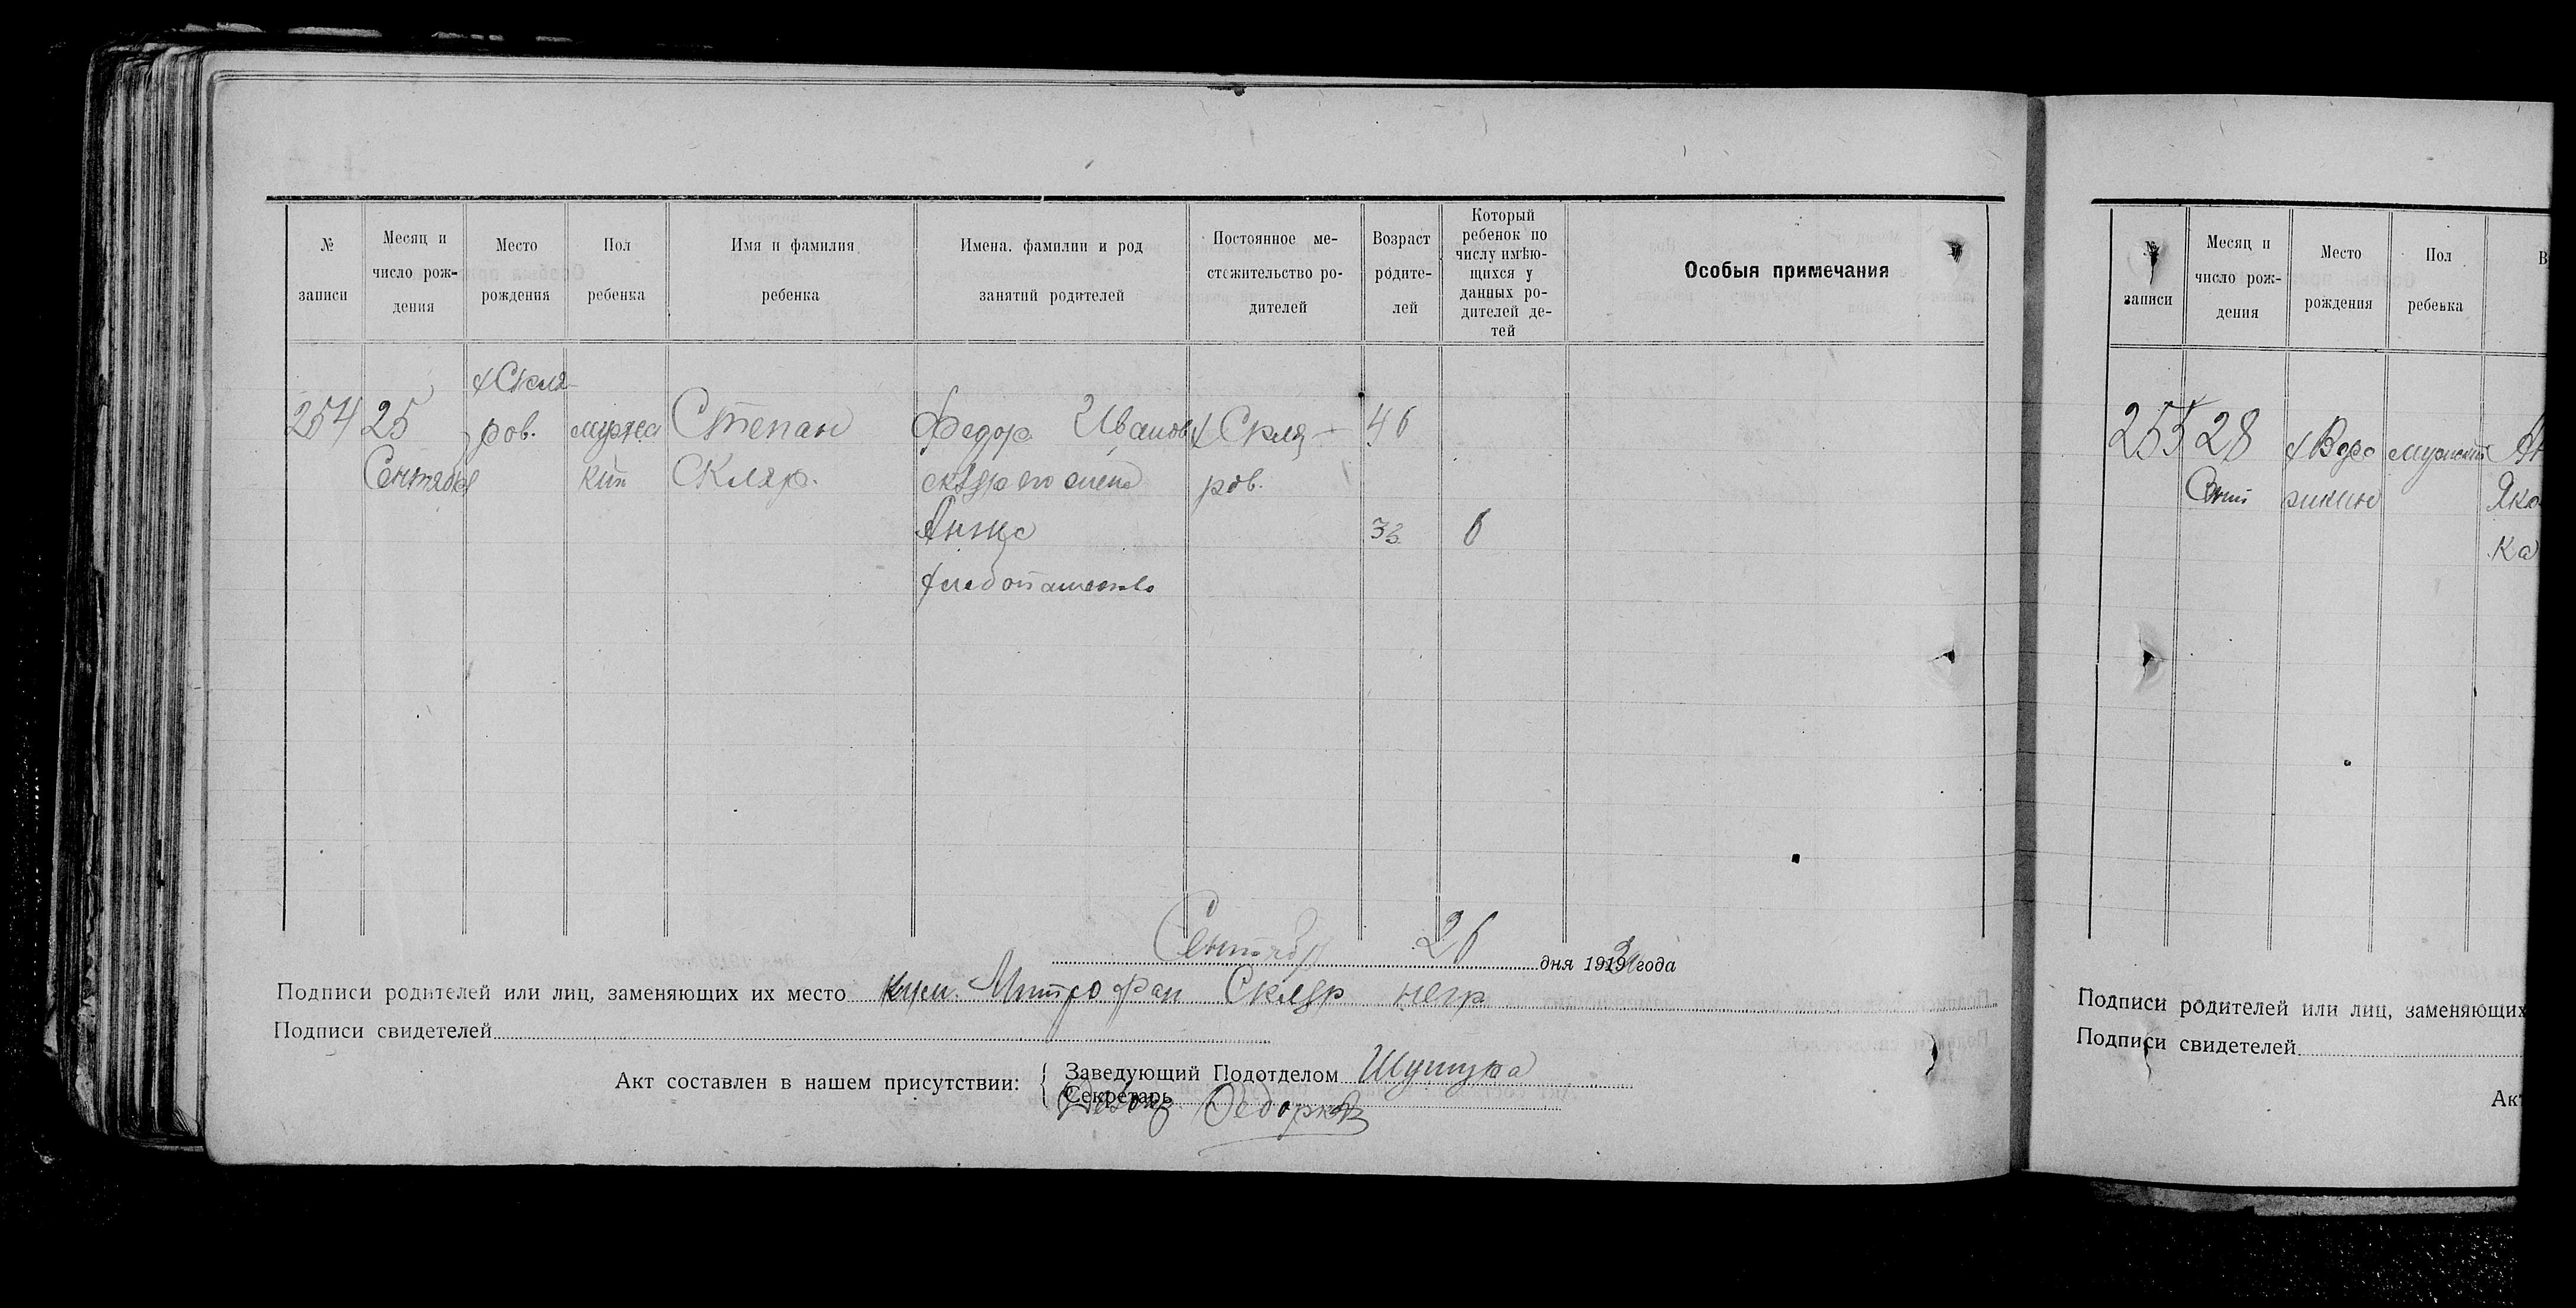 № записи
Месяц и число рождения
Место рождения
Пол ребенка
Имя и фамилия ребенка
Имена, фамилии и род занятий родителей
Постоянное местожительство родителей
Возраст родителей
Который ребенок по числу имѣющихся у данных родителей детей
Особыя примечания
254
25
Сентября
х Скля-
ров.
мужс
кий
Степан
Скляр.
Федор Иванов
Скляр
Анна
х Скля-
ров.
46
33
6
Сентябр 26 дня 1919 года
Подписи родителей или лиц, заменяющих их место Митрофан Скляр негр
Подписи свидетелей
Акт составлен в нашем присутствии:
Заведующий Подотделом
Секретарь
№ записи
Месяц и число рождения
Место рождения
Пол ребенка
255
28
Сент
мужский
Яко
Ка
Подписи родителей или лиц, заменяющих
Подписи свидетелей
Ак